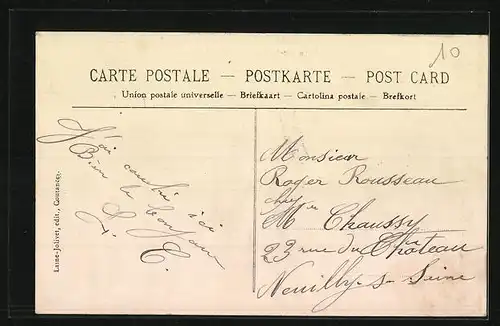 10
CARTE POSTALE — POSTKARTE — POST CARD
Union postale universelle — Briefkaart — Cartolina postale — Brefkort
J'ai ici
Bien le bonjour
L. C.
Laisné-Jolivet, édit., Coutances.
Monsieur
Roger Rousseau
chez
Me Chaussy
23 rue du Château
Neuilly-s-Seine